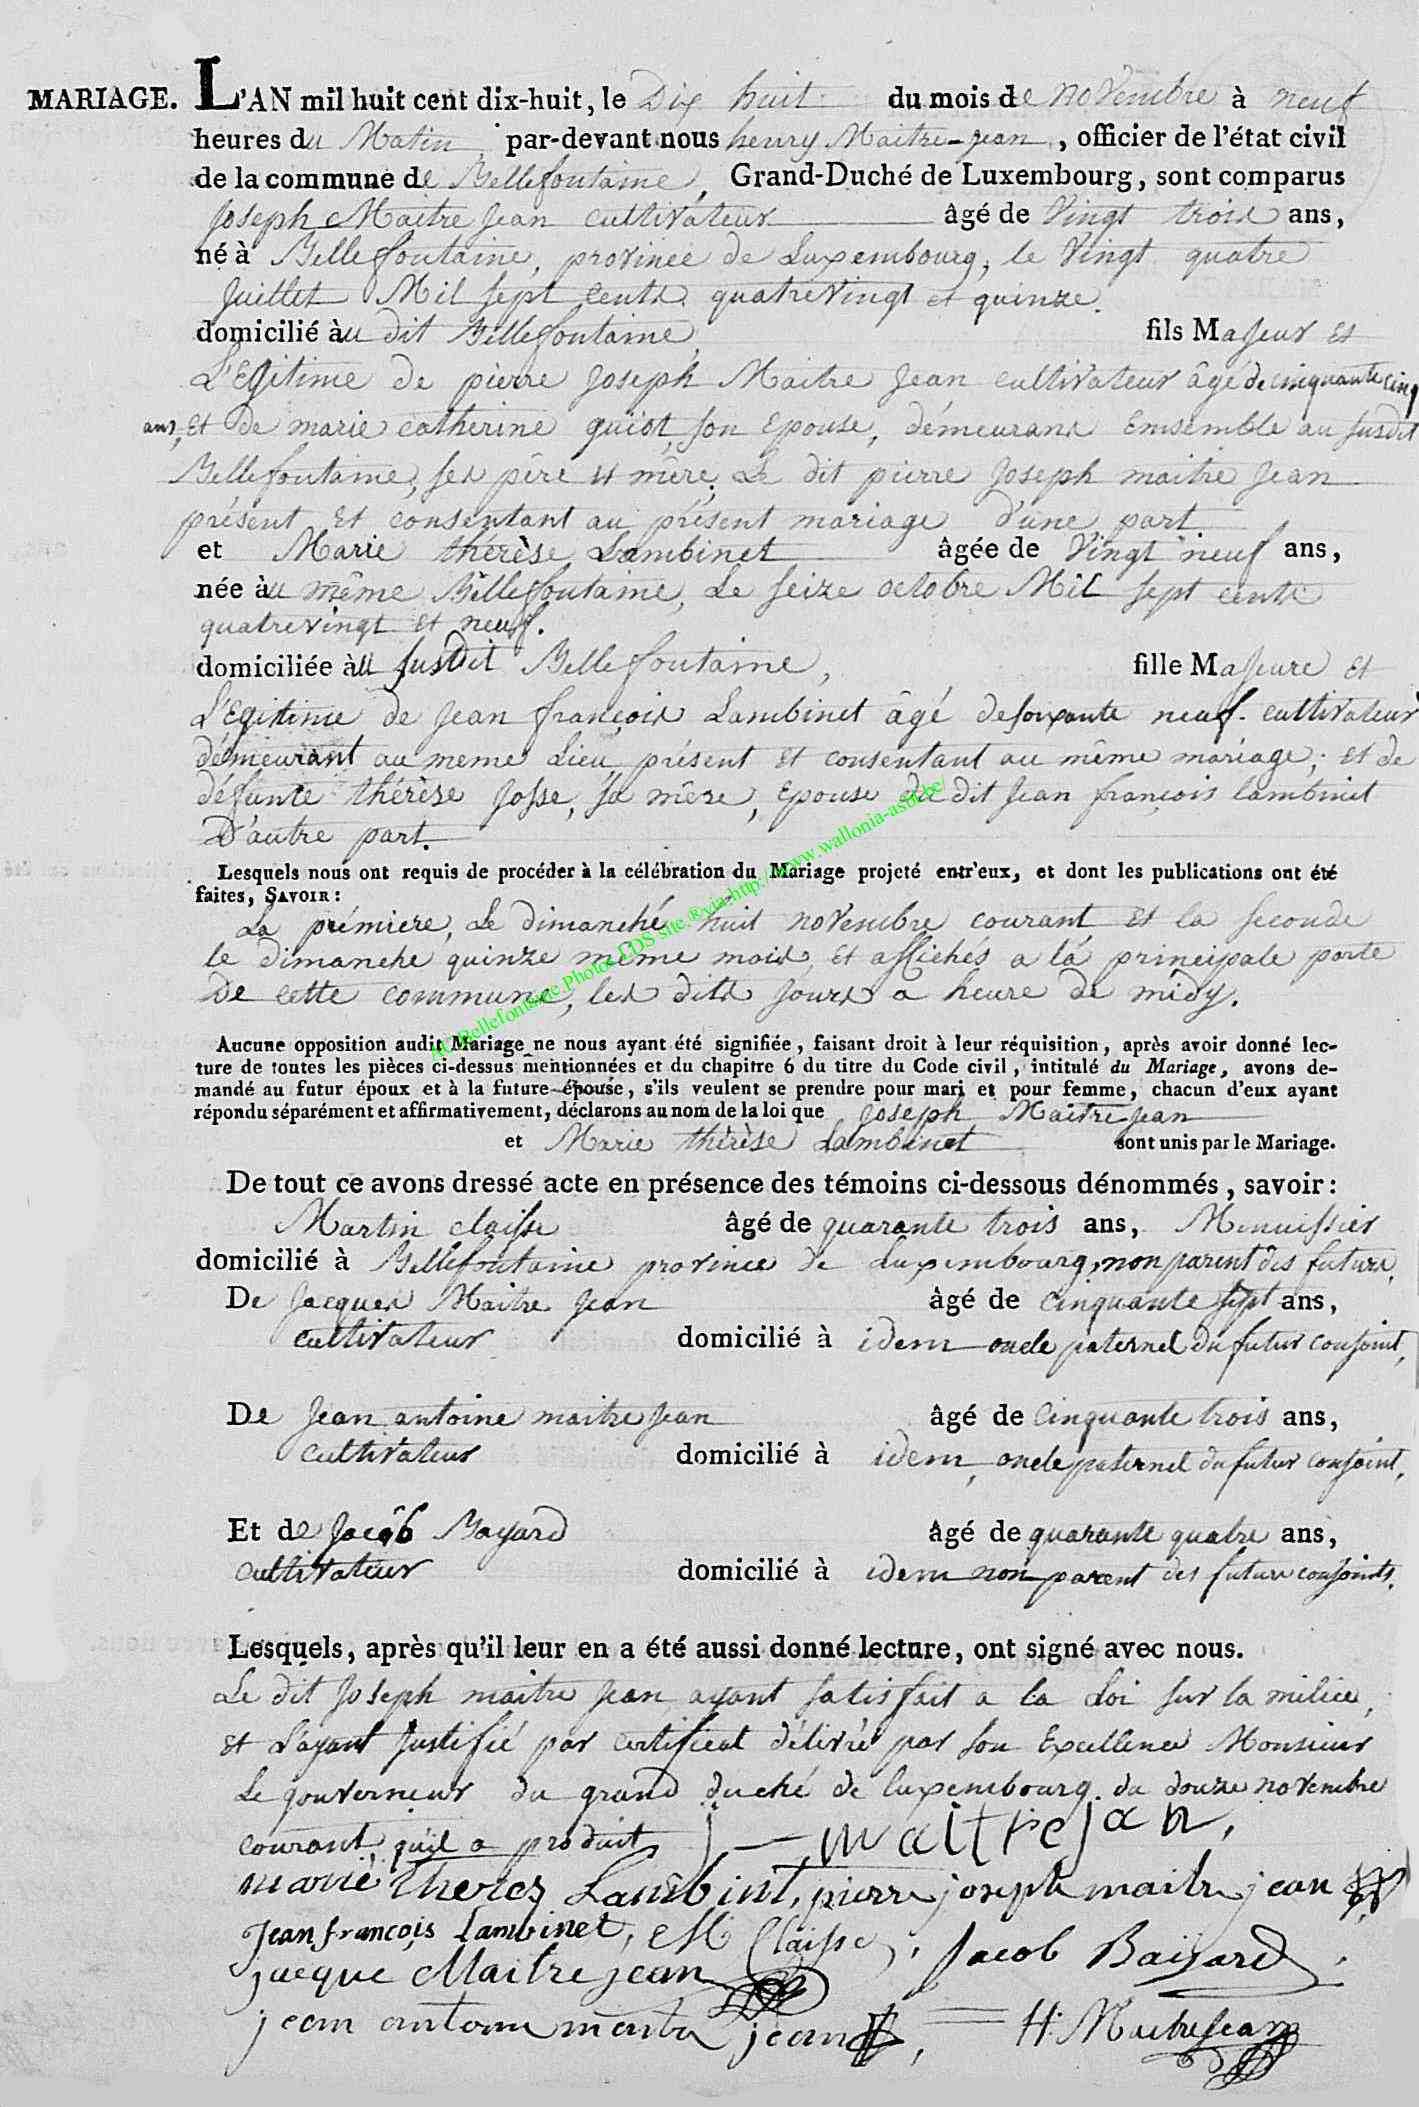 MARIAGE. L'AN mil huit cent dix-huit, le Dix huit du mois de novembre à neuf
heures du Matin par-devant nous henry Maitre-jean, officier de l'état civil
de la commune de Bellefontaine, Grand-Duché de Luxembourg, sont comparus
Joseph Maitre Jean cultivateur âgé de Vingt trois ans,
né à Bellefontaine, province de Luxembourg, le Vingt quatre
Juillet Mil sept cents quatrevingt et quinze.
domicilié àu dit Bellefontaine, fils Majeur et
L'Egitime de pierre Joseph Maitre Jean cultivateur âgé de cinquante cinq
ans, Et de marie catherine guiot, son Epouse, démeurans Emsemble au susdit
Bellefontaine, ses père et mère, Le dit pierre Joseph maitre Jean
présent Et consentant au présent mariage d'une part
et Marie thérèse Lambinet âgée de Vingt neuf ans,
née àu même Bellefontaine, Le seize octobre Mil sept cents
quatrevingt et neuf.
domiciliée àu susdit Bellefontaine, fille Majeure et
L'Egitime de Jean françois Lambinet âgé de soixante neuf cultivateur
démeurant au meme Lieu, présent Et consentant au même mariage; et de
défunte thérèse Josse, sa mère, Epouse du dit Jean françois lambinet
D'autre part.
Lesquels nous ont requis de procéder à la célébration du Mariage projeté entr'eux, et dont les publications ont été
faites, SAVOIR:
La prémiere, Le dimanché huit novembre courant Et la seconde
le dimanche quinze même mois, et affichés a là principale porte
De cette commune, les dits Jours a heure de midy.
AC Bellefontaine Photos LDS site ® via http://www.wallonia-asbl.be/
Aucune opposition audit Mariage ne nous ayant été signifiée, faisant droit à leur réquisition, après avoir donné lec-
ture de toutes les pièces ci-dessus mentionnées et du chapitre 6 du titre du Code civil, intitulé du Mariage, avons de-
mandé au futur époux et à la future épouse, s'ils veulent se prendre pour mari et pour femme, chacun d'eux ayant
répondu séparément et affirmativement, déclarons au nom de la loi que Joseph Maitre Jean
et Marie thérèse Lambinet sont unis par le Mariage.
De tout ce avons dressé acte en présence des témoins ci-dessous dénommés, savoir:
Martin claisse âgé de quarante trois ans, Menuissier
domicilié à Bellefontaine province de Luxembourg, non parent des futurs,
De Jacques Maitre Jean âgé de cinquante sept ans,
cultivateur domicilié à idem oncle paternel du futur conjoint,
De Jean antoine maitre Jean âgé de cinquante trois ans,
cultivateur domicilié à idem, oncle paternel du futur conjoint,
Et de Jacob Bayard âgé de quarante quatre ans,
cultivateur domicilié à idem non parent des futurs conjoints.
Lesquels, après qu'il leur en a été aussi donné lecture, ont signé avec nous.
Le dit Joseph maitre Jean ayant satisfait a la Loi sur la milice,
Et L'ayant Justifié par certificat délivré par son Excellence Monsieur
Le gouverneur du grand duché de luxembourg du douze novembre
courant, qu'il a produit J — maitrejan,
marie Therez Lambint, pierre joseph maitre jean
Jean françois Lambinet, M Claisse, Jacob Baiyard,
jacque Maitre jean
jean antoine maitre jean, H: MaitreJean